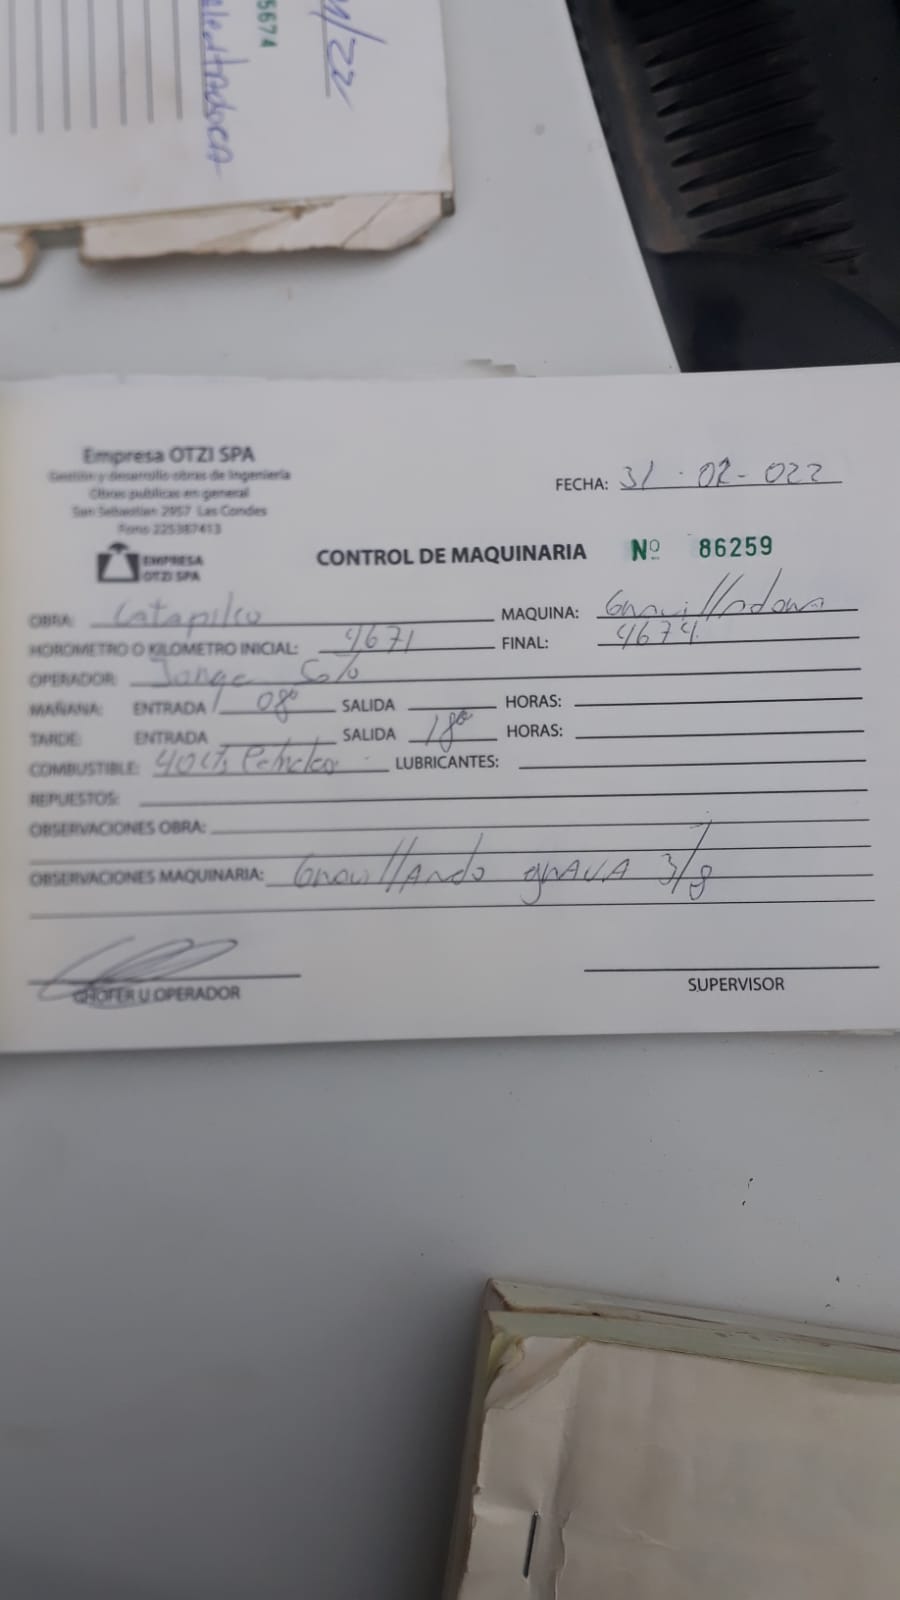 5674
/22
Empresa OTZI SPA
Gestión y desarrollo obras de Ingeniería
Obras publicas en general
San Sebastian 2957 Las Condes
Fono 225387413
EMPRESA
OTZI SPA
FECHA: 31-02-022
CONTROL DE MAQUINARIA Nº 86259
OBRA: Catapilco MAQUINA: Gravilladora
HOROMETRO O KILOMETRO INICIAL: 4671 FINAL: 4674
OPERADOR: Jorge Soto
MAÑANA: ENTRADA 08º SALIDA HORAS:
TARDE: ENTRADA SALIDA 18º HORAS:
COMBUSTIBLE: 40 Lts Petroleo LUBRICANTES:
REPUESTOS:
OBSERVACIONES OBRA:
OBSERVACIONES MAQUINARIA: Gravillando grava 3/8
CHOFER U OPERADOR
SUPERVISOR